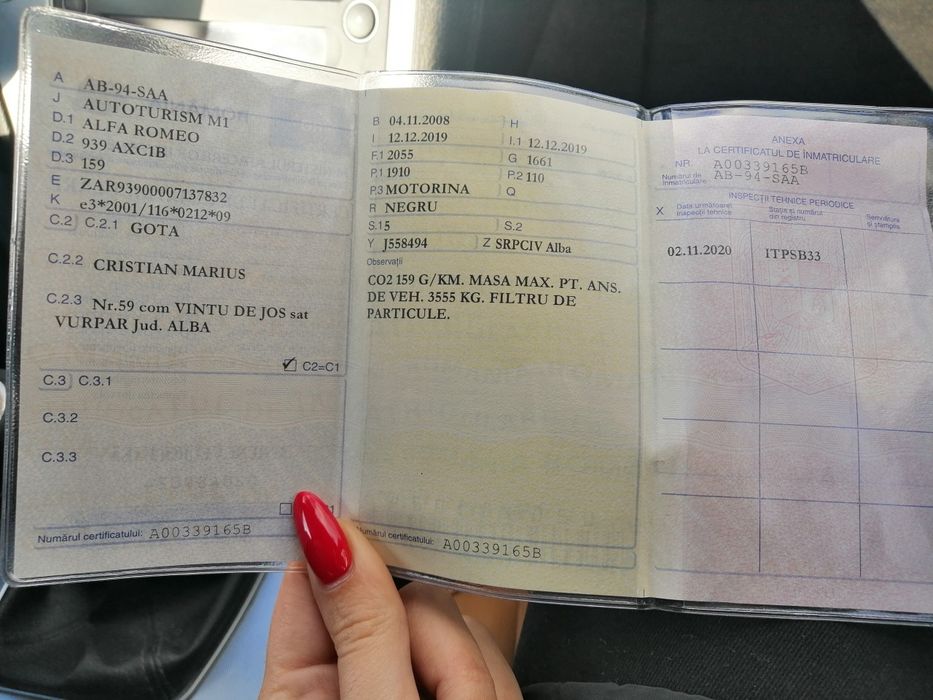 A AB-94-SAA
J AUTOTURISM M1
D.1 ALFA ROMEO
D.2 939 AXC1B
D.3 159
E ZAR93900007137832
K e3*2001/116*0212*09
C.2 C.2.1 GOTA
C.2.2 CRISTIAN MARIUS
C.2.3 Nr.59 com VINTU DE JOS sat
VURPAR Jud. ALBA
C2=C1
C.3 C.3.1
C.3.2
C.3.3
Numărul certificatului: A00339165B
B 04.11.2008 H
I 12.12.2019 I.1 12.12.2019
F.1 2055 G 1661
P.1 1910 P.2 110
P.3 MOTORINA Q
R NEGRU
S.1 5 S.2
Y J558494 Z SRPCIV Alba
Observații
CO2 159 G/KM. MASA MAX. PT. ANS.
DE VEH. 3555 KG. FILTRU DE
PARTICULE.
Numărul certificatului: A00339165B
ANEXA
LA CERTIFICATUL DE ÎNMATRICULARE
NR. A00339165B
Numărul de
înmatriculare AB-94-SAA
INSPECȚII TEHNICE PERIODICE
X Data următoarei
inspecții tehnice
Stația și numărul
din registru
Semnătura
și ștampila
02.11.2020 ITPSB33